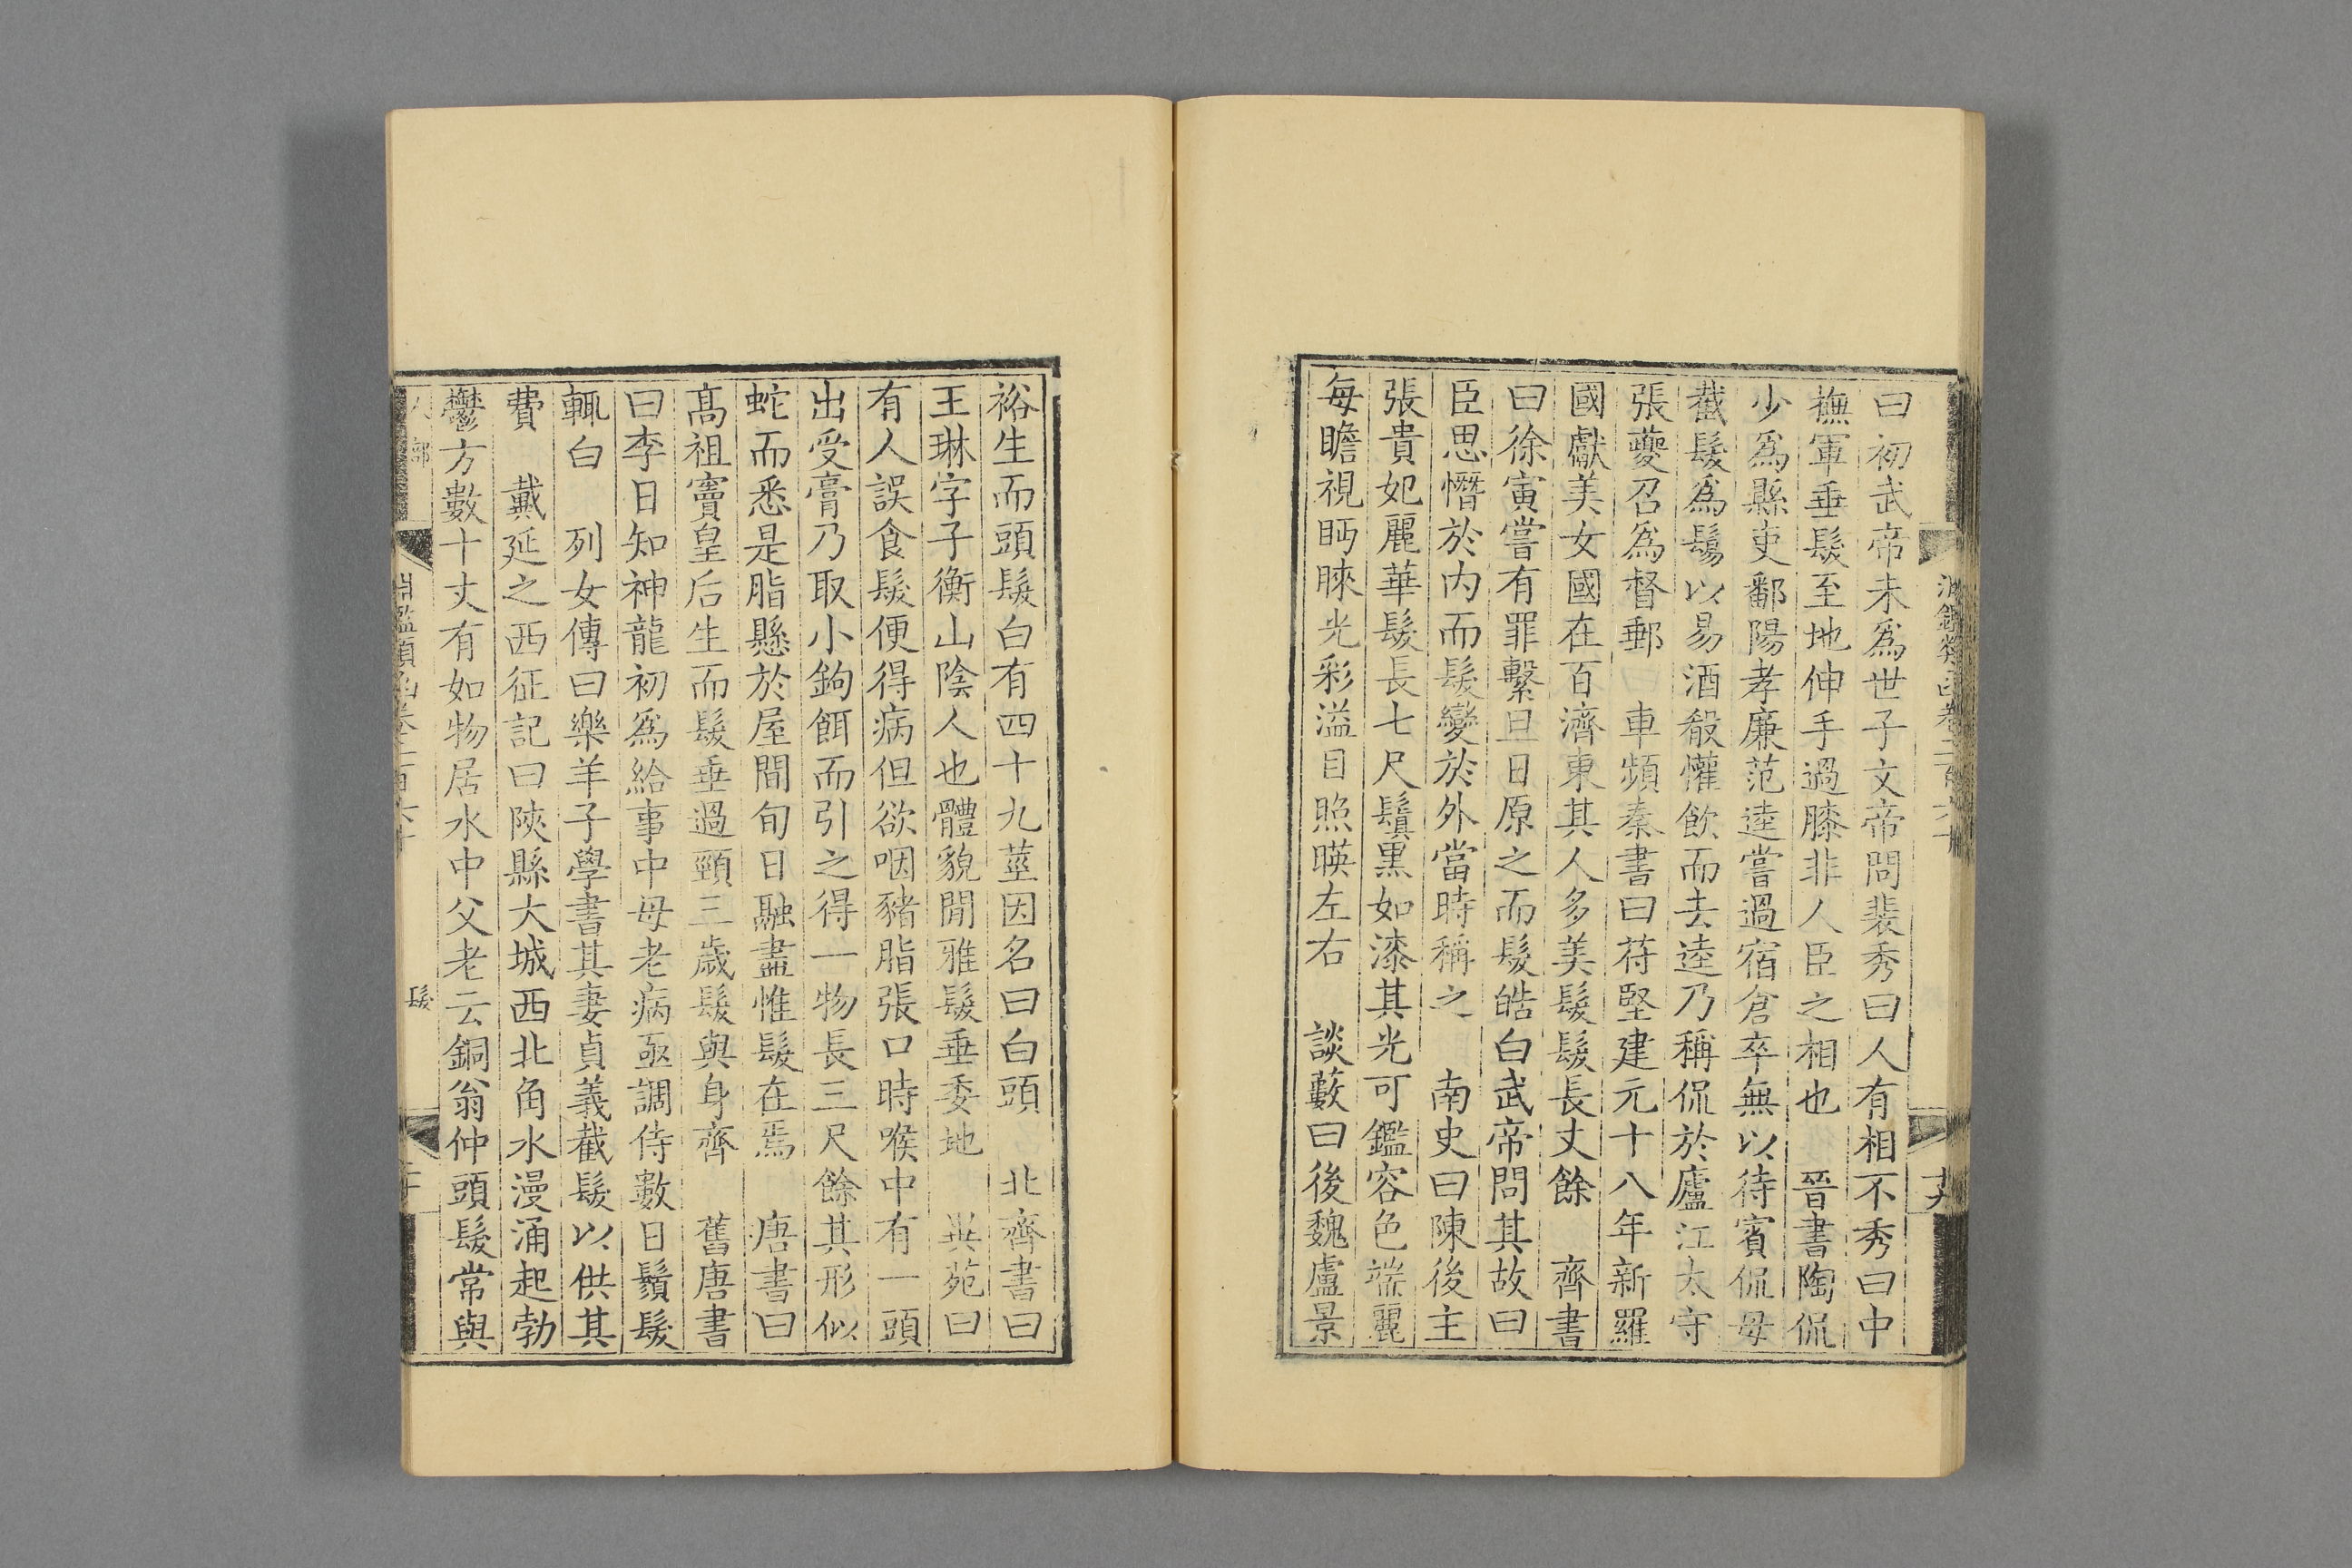 曰初武帝未爲世子文帝問裴秀曰人有相不秀曰中
撫軍垂髮至地伸手過膝非人臣之相也　晉書陶侃
少爲縣吏鄱陽孝廉范逵嘗過宿倉卒無以待賓侃母
截髮爲髢以易酒殽懽飲而去逵乃稱侃於廬江太守
張夔召爲督郵　車頻秦書曰苻堅建元十八年新羅
國獻美女國在百濟東其人多美髮髮長丈餘　齊書
曰徐寅嘗有罪繫旦日原之而髮皓白武帝問其故曰
臣思愆於内而髮變於外當時稱之　南史曰陳後主
張貴妃麗華髮長七尺鬒黑如漆其光可鑑容色端麗
每瞻視眄睞光彩溢目照暎左右　談藪曰後魏盧景
裕生而頭髮白有四十九莖因名曰白頭　北齊書曰
王琳字子衡山陰人也體貌閒雅髮垂委地　異苑曰
有人誤食髮便得病但欲咽豬脂張口時喉中有一頭
出受膏乃取小鉤餌而引之得一物長三尺餘其形似
蛇而悉是脂懸於屋間旬日融盡惟髮在焉　唐書曰
髙祖竇皇后生而髮垂過頸三歲髮與身齊　舊唐書
曰李日知神龍初爲給事中母老病亟調侍數日鬚髮
輒白　列女傳曰樂羊子學書其妻貞義截髮以供其
費　戴延之西征記曰陝縣大城西北角水漫涌起勃
鬱方數十丈有如物居水中父老云銅翁仲頭髮常與
人部
淵鑑類函卷二百六十
髮